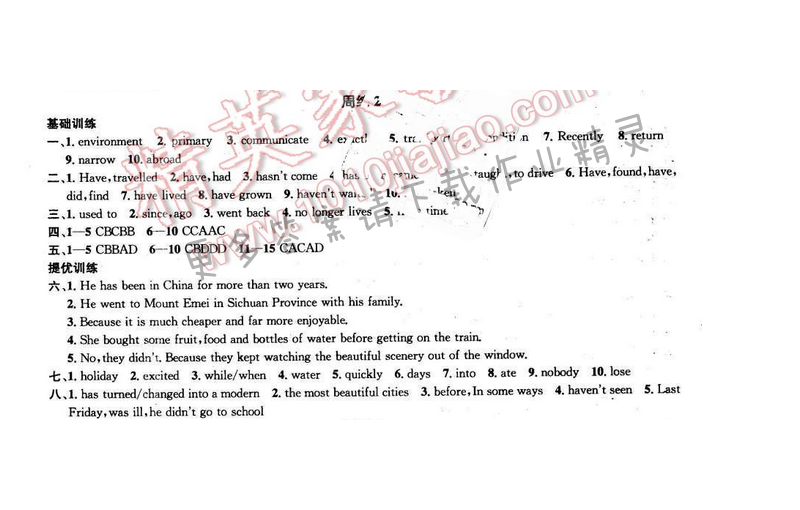 周练 2
基础训练
一、1. environment 2. primary 3. communicate 4. 5. 7. Recently 8. return
9. narrow 10. abroad
二、1. Have, travelled 2. have, had 3. hasn't come 4. has to drive 6. Have, found, have,
did, find 7. have lived 8. have grown 9. haven't 10.
三、1. used to 2. since, ago 3. went back 4. no longer lives 5. time
四、1—5 CBCBB 6—10 CCAAC
五、1—5 CBBAD 6—10 CBDDD 11—15 CACAD
提优训练
六、1. He has been in China for more than two years.
2. He went to Mount Emei in Sichuan Province with his family.
3. Because it is much cheaper and far more enjoyable.
4. She bought some fruit, food and bottles of water before getting on the train.
5. No, they didn't. Because they kept watching the beautiful scenery out of the window.
七、1. holiday 2. excited 3. while/when 4. water 5. quickly 6. days 7. into 8. ate 9. nobody 10. lose
八、1. has turned/changed into a modern 2. the most beautiful cities 3. before, In some ways 4. haven't seen 5. Last
Friday, was ill, he didn't go to school
精英家教网
www.1010jiajiao.com
更多答案请下载作业精灵